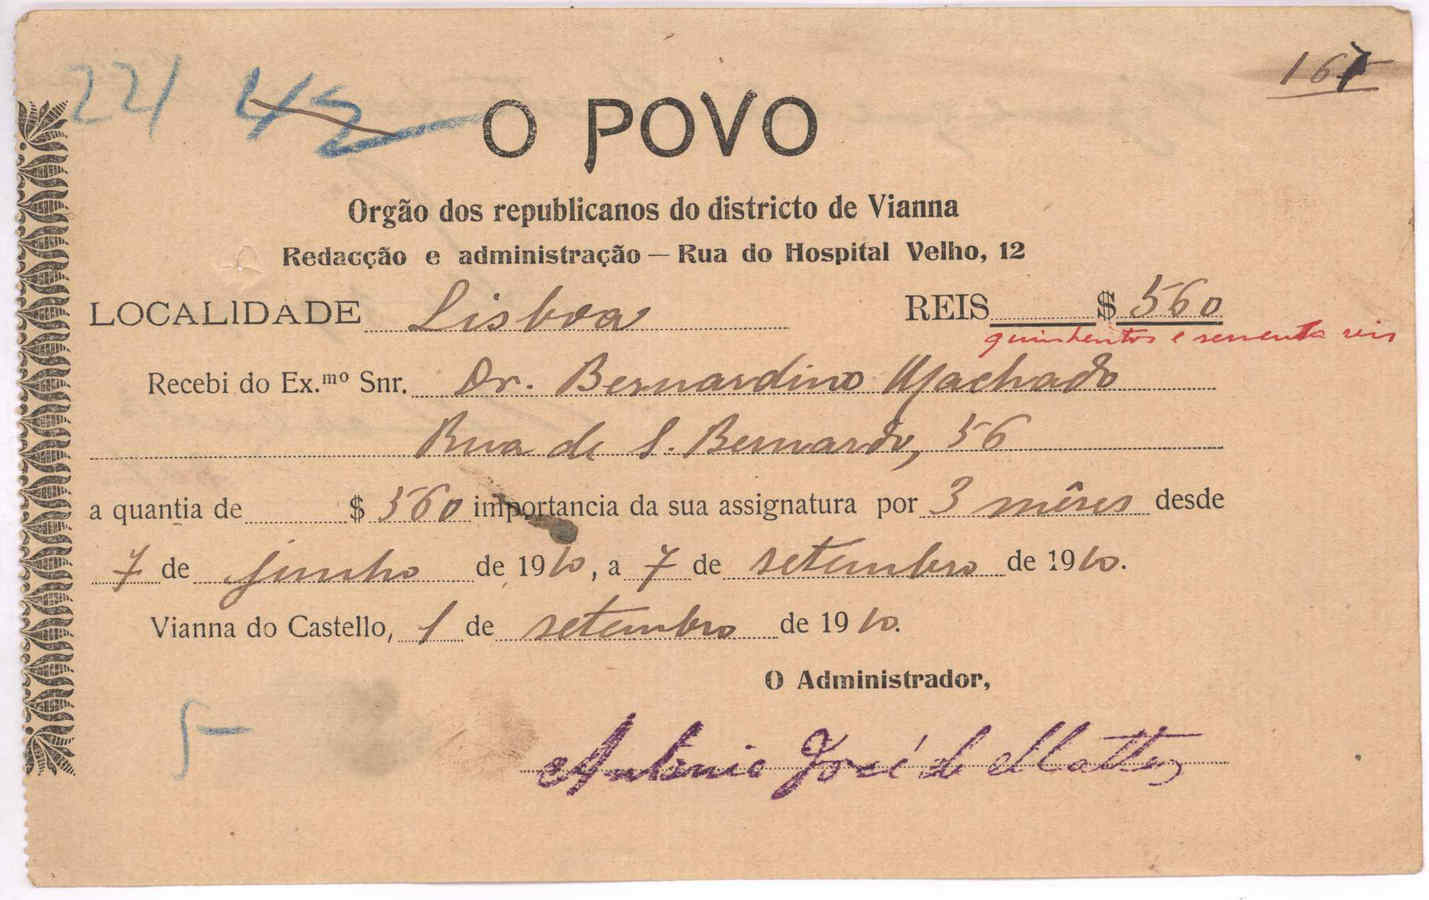 221 42
167
O POVO
Orgão dos republicanos do districto de Vianna
Redacção e administração — Rua do Hospital Velho, 12
LOCALIDADE Lisboa REIS $ 560
quinhentos e sessenta reis
Recebi do Ex.mo Snr. Dr. Bernardino Machado
Rua de S. Bernardo, 56
a quantia de $ 560 importancia da sua assignatura por 3 mêses desde
7 de junho de 1910, a 7 de setembro de 1910.
Vianna do Castello, 1 de setembro de 1910.
O Administrador,
5
Antonio José de Mattos